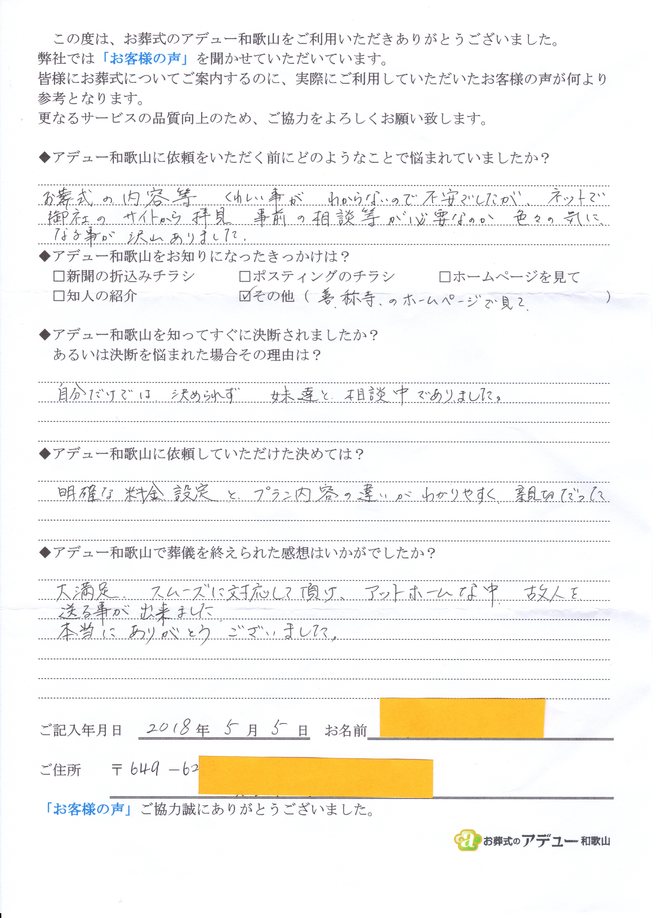 この度は、お葬式のアデュー和歌山をご利用いただきありがとうございました。
弊社では「お客様の声」を聞かせていただいています。
皆様にお葬式についてご案内するのに、実際にご利用していただいたお客様の声が何より
参考となります。
更なるサービスの品質向上のため、ご協力をよろしくお願い致します。
◆アデュー和歌山に依頼をいただく前にどのようなことで悩まれていましたか？
お葬式の内容等 くわしい事が わからないので不安でしたが、ネットで
御社の サイトから拝見 事前の相談等が必要なのか 色々の気に
なる事が 沢山ありました。
◆アデュー和歌山をお知りになったきっかけは？
□新聞の折込みチラシ □ポスティングのチラシ □ホームページを見て
□知人の紹介 ☑その他（善称寺、のホームページで見て ）
◆アデュー和歌山を知ってすぐに決断されましたか？
あるいは決断を悩まれた場合その理由は？
自分だけでは 決められず 妹達と 相談中でありました。
◆アデュー和歌山に依頼していただけた決めては？
明確な 料金設定 と、プラン内容の違いが わかりやすく、親切だった
◆アデュー和歌山で葬儀を終えられた感想はいかがでしたか？
大満足、スムーズに対応して頂け、アットホームな中、故人を
送る事が 出来ました
本当に ありがとう ございました。
ご記入年月日 2018年 5月 5日 お名前
ご住所 〒649-62
「お客様の声」ご協力誠にありがとうございました。
a お葬式のアデュー和歌山